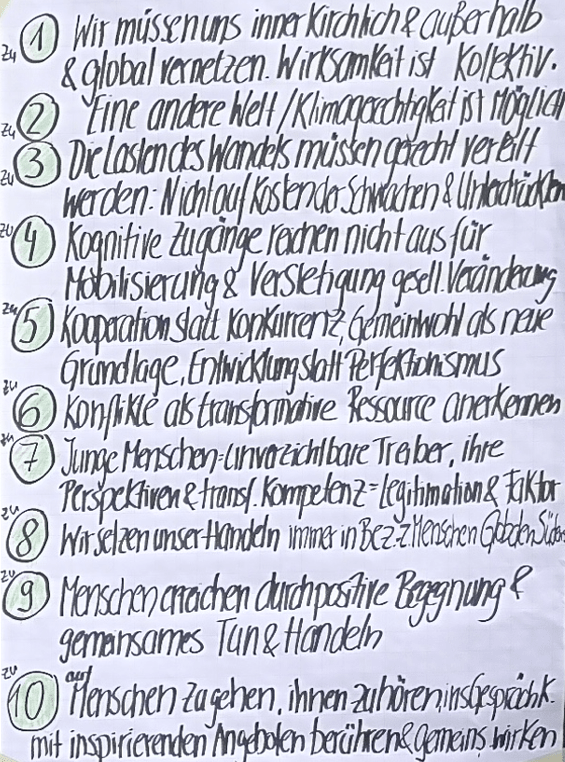 zu 1 Wir müssen uns innerkirchlich & außerhalb
& global vernetzen. Wirksamkeit ist Kollektiv.
zu 2 Eine andere Welt / Klimagerechtigkeit ist möglich
zu 3 Die Lasten des Wandels müssen gerecht verteilt
werden: Nicht auf Kosten der Schwachen & Unterdrückten
zu 4 Kognitive Zugänge reichen nicht aus für
Mobilisierung & Verstetigung gesell. Veränderung
zu 5 Kooperation statt Konkurrenz, Gemeinwohl als neue
Grundlage, Entwicklung statt Perfektionismus
zu 6 Konflikte als transformative Ressource anerkennen
zu 7 Junge Menschen = unverzichtbare Treiber, ihre
Perspektiven & transf. Kompetenz = Legitimation & Faktor
zu 8 Wir setzen unser Handeln immer in Bez. z. Menschen Globalen Süden
zu 9 Menschen erreichen durch positive Begegnung &
gemeinsames Tun & Handeln
zu 10 auf Menschen zugehen, ihnen zuhören, ins Gespräch k.
mit inspirierenden Angeboten berühren & gemeins. wirken